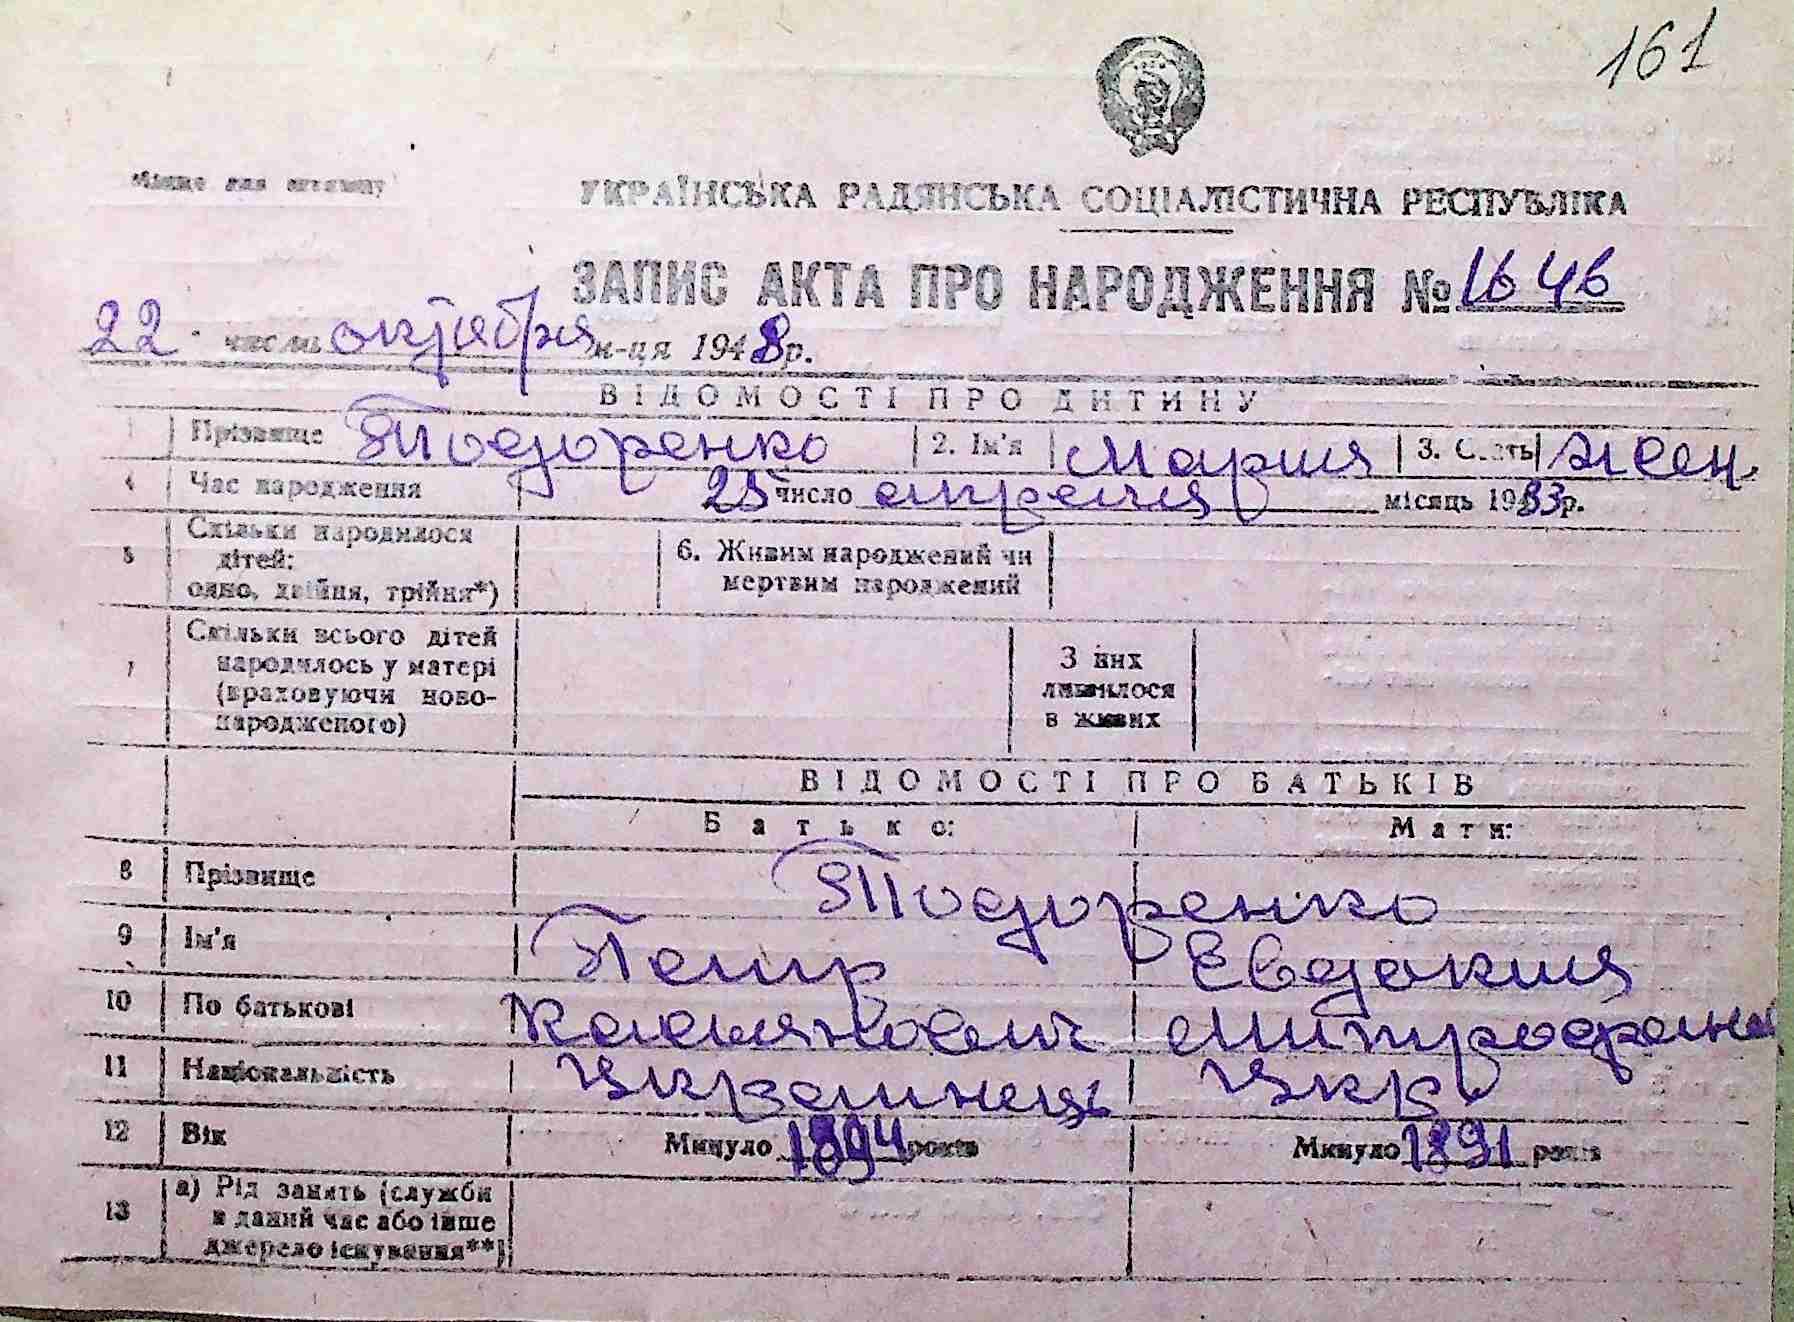 161
Місце для штампу
УКРАЇНСЬКА РАДЯНСЬКА СОЦІАЛІСТИЧНА РЕСПУБЛІКА
ЗАПИС АКТА ПРО НАРОДЖЕННЯ № 1646
22 числа октября м-ця 1948 р.
ВІДОМОСТІ ПРО ДИТИНУ
1 Прізвище Тодоренко 2. Ім'я Мария 3. Стать жен.
4 Час народження 25 число апреля місяць 1933 р.
5 Скільки народилося
дітей:
одно, двійня, трійня*)
6. Живим народжений чи
мертвим народжений
7 Скільки всього дітей
народилось у матері
(враховуючи ново-
народженого)
З них
лишилося
в живих
ВІДОМОСТІ ПРО БАТЬКІВ
Батько: Мати:
8 Прізвище Тодоренко
9 Ім'я Петр Евдокия
10 По батькові Касьянович Митрофан
11 Національність Украинець Укр.
12 Вік Минуло 1894 років Минуло 1891 років
13 а) Рід занять (служби
в даний час або інше
джерело існування**)